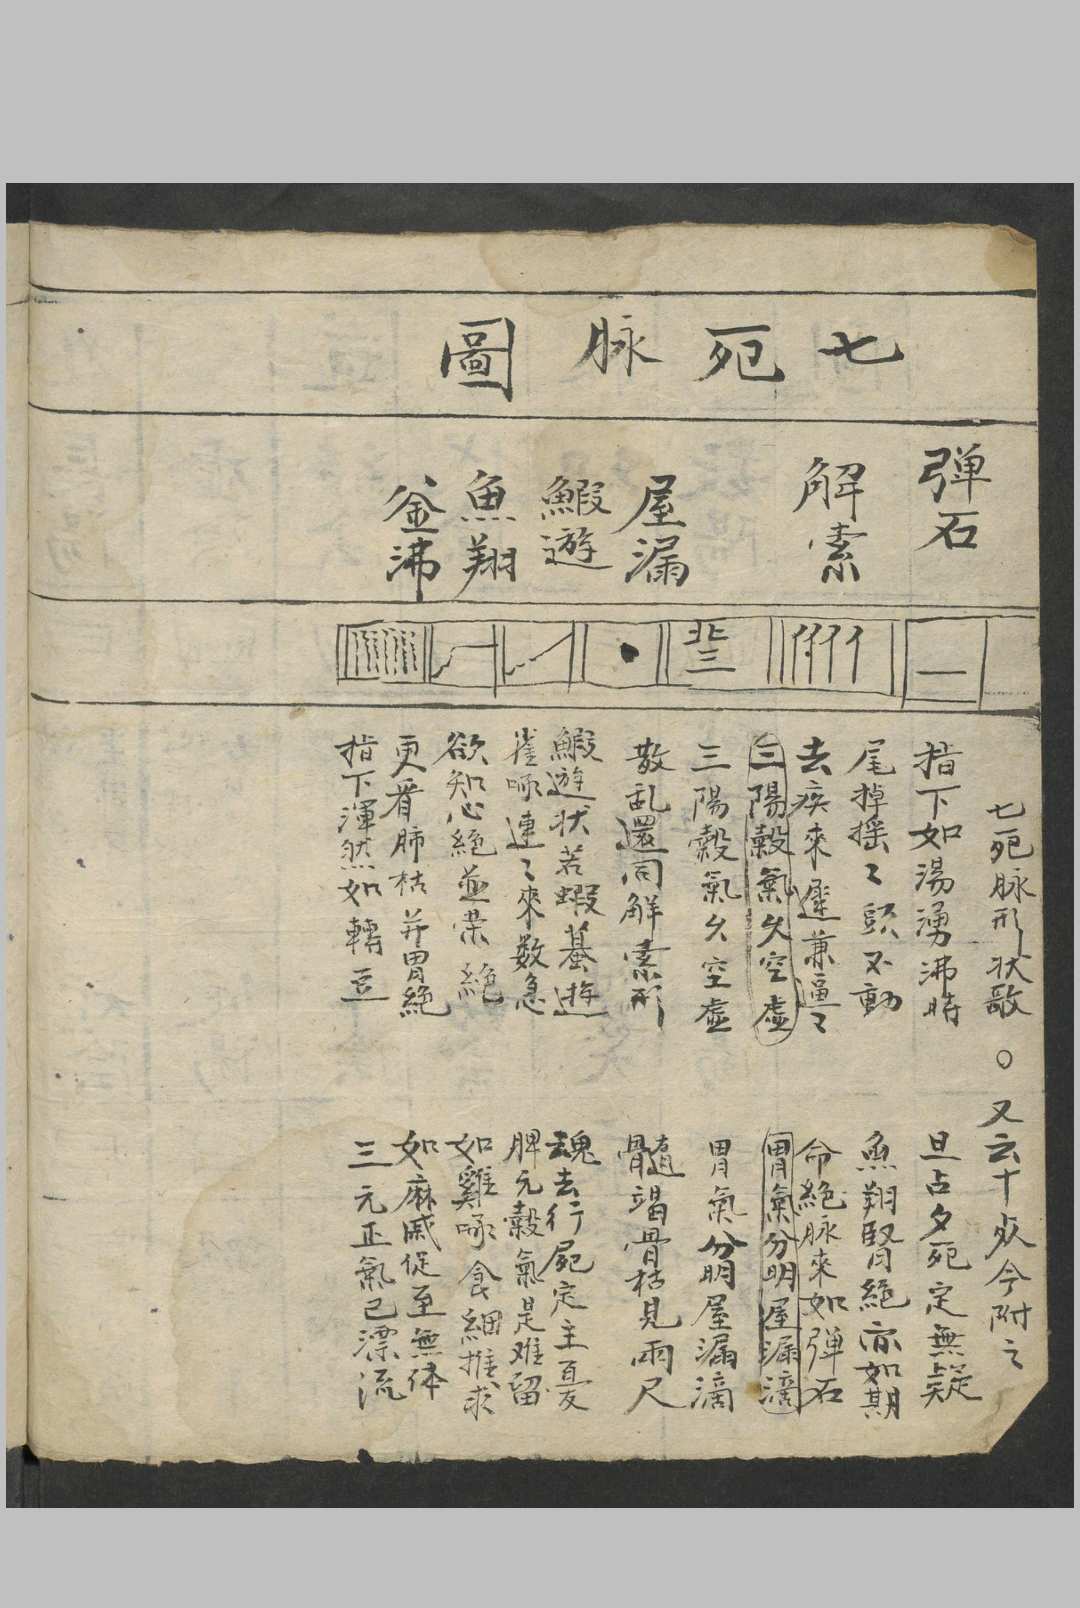 七死脉圖
弹石
解索
屋漏
鰕遊
魚翔
釜沸
北三
七死脉形状歌 ○ 又云十死今附之
指下如湯湧沸時 旦占夕死定無疑
尾掉摇〻頭不動 魚翔腎絕亦如期
去疾來遲兼逼〻 命絕脉來如弹石
三陽穀氣久空虚 胃氣分明屋漏滴
三陽穀氣久空虚 胃氣分明屋漏滴
散乱還同解索形 髓竭骨枯見兩尺
鰕遊状若蝦蟇遊 魂去行屍定主憂
雀啄連〻來数急 脾元穀氣是难留
欲知心絕並榮絕 如雞啄食細推求
更看肺枯并胃絕 如麻戚促至無体
指下渾然如轉豆 三元正氣已漂流